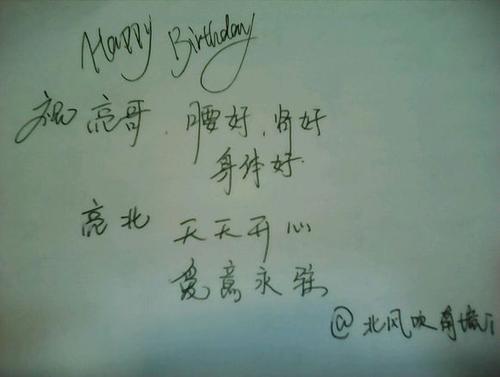 Happy Birthday
祝亮哥,腰好,肾好
身体好
亮北 天天开心
爱意永驻
@北风吹